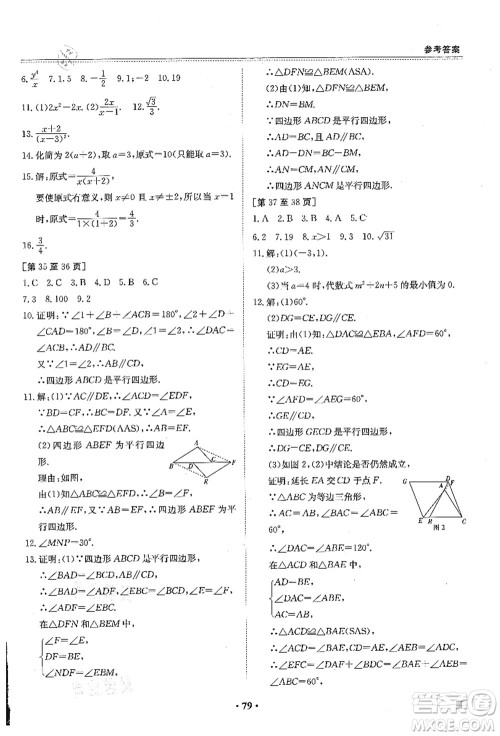 参考答案
6. y⁴/x 7. 1.5 8. -1/2 9. 2 10. 19
11. (1)2x²-2x. (2) 2x/(x-1). 12. √3/3
13. (x+2)/(x-3)².
14. 化简为 2(a+2),取 a=3,原式=10(只能取 a=3).
15. 解:原式=4/(x(x+2))
要使原式有意义,则 x≠0 且 x≠±2,当 x=1
时,原式=4/(1×(1+2))=4/3.
16. 3/4.
[第 35 至 36 页]
1. C 2. A 3. C 4. C 5. A 6. C
7. 3 8. 100 9. 2
10. 证明:∵∠1+∠B+∠ACB=180°,∠2+∠D+
∠CAD=180°,∠B=∠D,∠1=∠2,∴∠DAC=
∠ACB.∴AD∥BC.
又∵∠1=∠2,∴AB∥CD.
∴四边形 ABCD 是平行四边形.
11. 解:(1)证明:∵AC∥DE,∴∠ACD=∠EDF.
∵BD=CF,∴BC=DF.
又∵∠A=∠E,∴△ABC≌△EFD(AAS).
∴AB=EF.
(2)四边形 ABEF 为平行四
边形.
理由:如图,
∵△ABC≌△EFD,∴∠B=∠F.∴AB∥EF.
又∵AB=EF,
∴四边形 ABEF 为平行四边形.
12. ∠MNP=30°.
13. 证明:(1)∵四边形 ABCD 为平行四边形,
∴∠BAD=∠BCD,AB∥CD.
∴∠BAD=∠ADF.∴∠ADF=∠BCD.
∴∠FDN=∠EBM.
在△DFN 和△BEM 中,
∠F=∠E,
DF=BE,
∠FDN=∠EBM,
∴△DFN≌△BEM(ASA).
(2)由(1)知,△DFN≌△BEM(ASA),
∴DN=BM.
∵四边形 ABCD 是平行四边形,
∴AD=BC,且 AD∥BC.
∴AD-DN=BC-BM.
∴AN=CM,AN∥CM.
∴四边形 ANCM 是平行四边形.
[第 37 至 38 页]
1. A 2. B 3. D 4. C 5. C
6. 2 7. 19 8. x>1 9. 4 10. √31
11. 解:(1)<;
(2)a>3.
(3)当 a=4 时,代数式 m²+2n+5 的最小值为 0.
12. 解:(1)60°.
(2)DG∥CE,DG=CE.
证明:由(1)知,△DAB≌△EAC,
∴BD=CE,∠ABD=∠C=60°.
∵DG=BD,∴DG=CE.
∵∠AEG=∠ABC=60°,
∴∠ABD=∠AEG=60°.
∴GE∥CD.
∴四边形 GECD 是平行四边形.
∴DG∥CE.
(3)如图 2 中结论是否仍然成立.
证明:延长 EA 交 CD 于点 F.
∵△ABC 为等边三角形,
∴∠BAC=∠ABC=
60°.
在△ACD 和△BAE 中,
AD=BE,
∠DAC=∠EBA,
AC=BA,
∴△ACD≌△BAE(SAS).
∴∠ACD=∠BAE.
∵∠BAE+∠EAC=120°,
图 3
· 79 ·